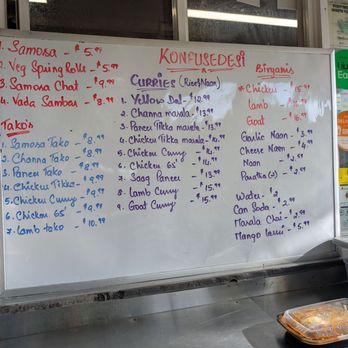 KONFUSEDESI
1. Samosa - $5.99
2. Veg Spring Rolls - $5.99
3. Samosa Chat - $9.99
4. Vada Sambar - $8.99
Tako's
1. Samosa Tako - $8.99
2. Channa Tako - $8.99
3. Paneer Tako - $9.99
4. Chicken Tikka - $9.99
5. Chicken Curry - $9.99
6. Chicken 65' - $9.99
7. Lamb tako - $10.99
CURRIES (Rice/Naan)
1. Yellow Dal - $12.99
2. Channa masala - $13.99
3. Paneer Tikka masala - $13.99
4. Chicken Tikka masala -
5. Chicken Curry -
6. Chicken 65' -
7. Saag Paneer - $13.99
8. Lamb Curry - $15.99
9. Goat Curry - $15.99
Biryani's
Chicken
Lamb
Goat
Garlic Naan - $3.99
Cheese Naan -
Naan -
Paratha (2) - $3.99
Water - $2
Can Soda - $2
Masala Chai - $2.99
Mango Lassi - $5.99